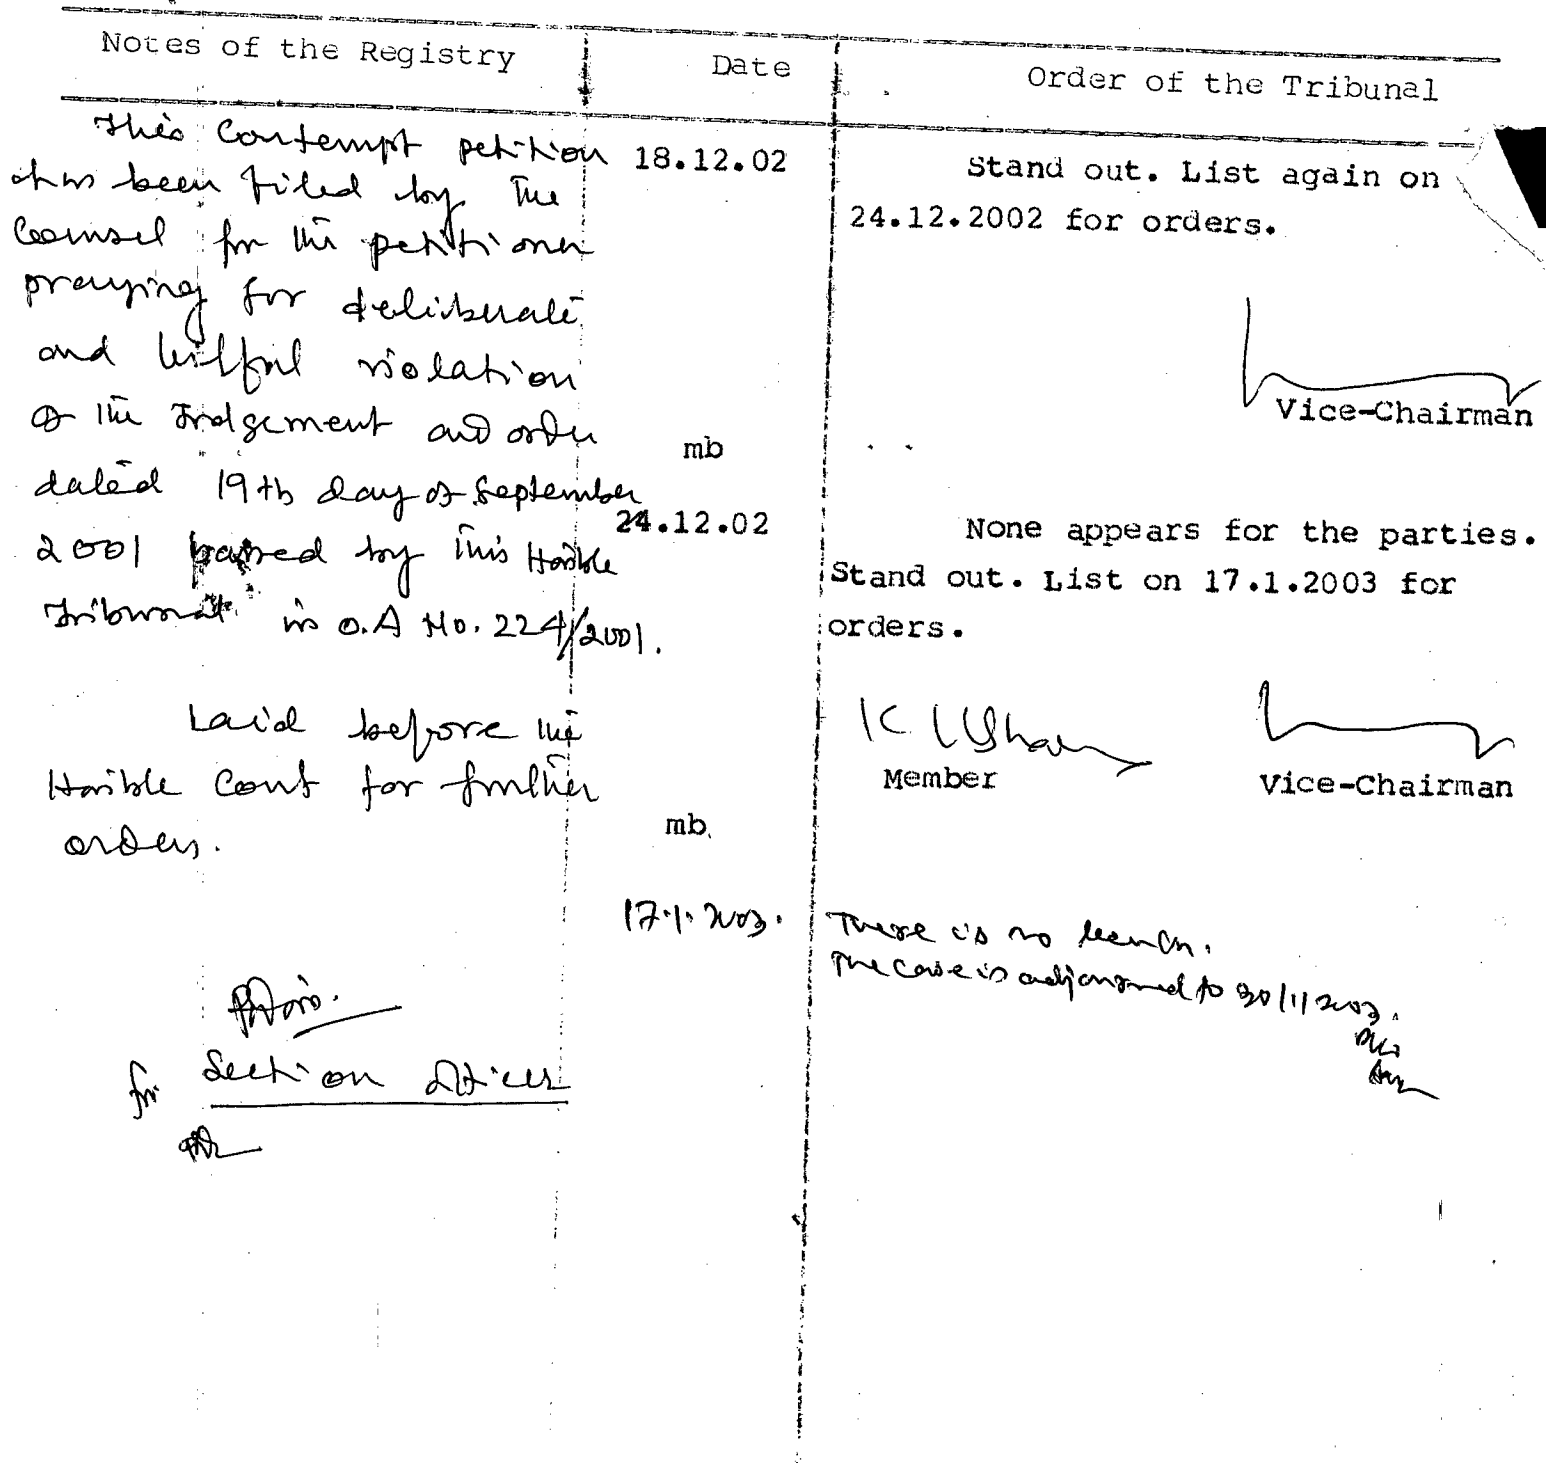 Notes of the Registry
Date
Order of the Tribunal
This Contempt petition
has been filed by the
Counsel for the petitioner
praying for deliberate
and wilful violation
of the Judgement and order
dated 19th day of September
2001 passed by this Hon'ble
Tribunal in O.A No. 224/2001.
Laid before the
Hon'ble Court for further
orders.
for Section Officer
18.12.02
Stand out. List again on
24.12.2002 for orders.
Vice-Chairman
mb
24.12.02
None appears for the parties.
Stand out. List on 17.1.2003 for
orders.
Member
Vice-Chairman
mb
17.1.2003.
There is no bench.
The case is adjourned to 30/1/2003.